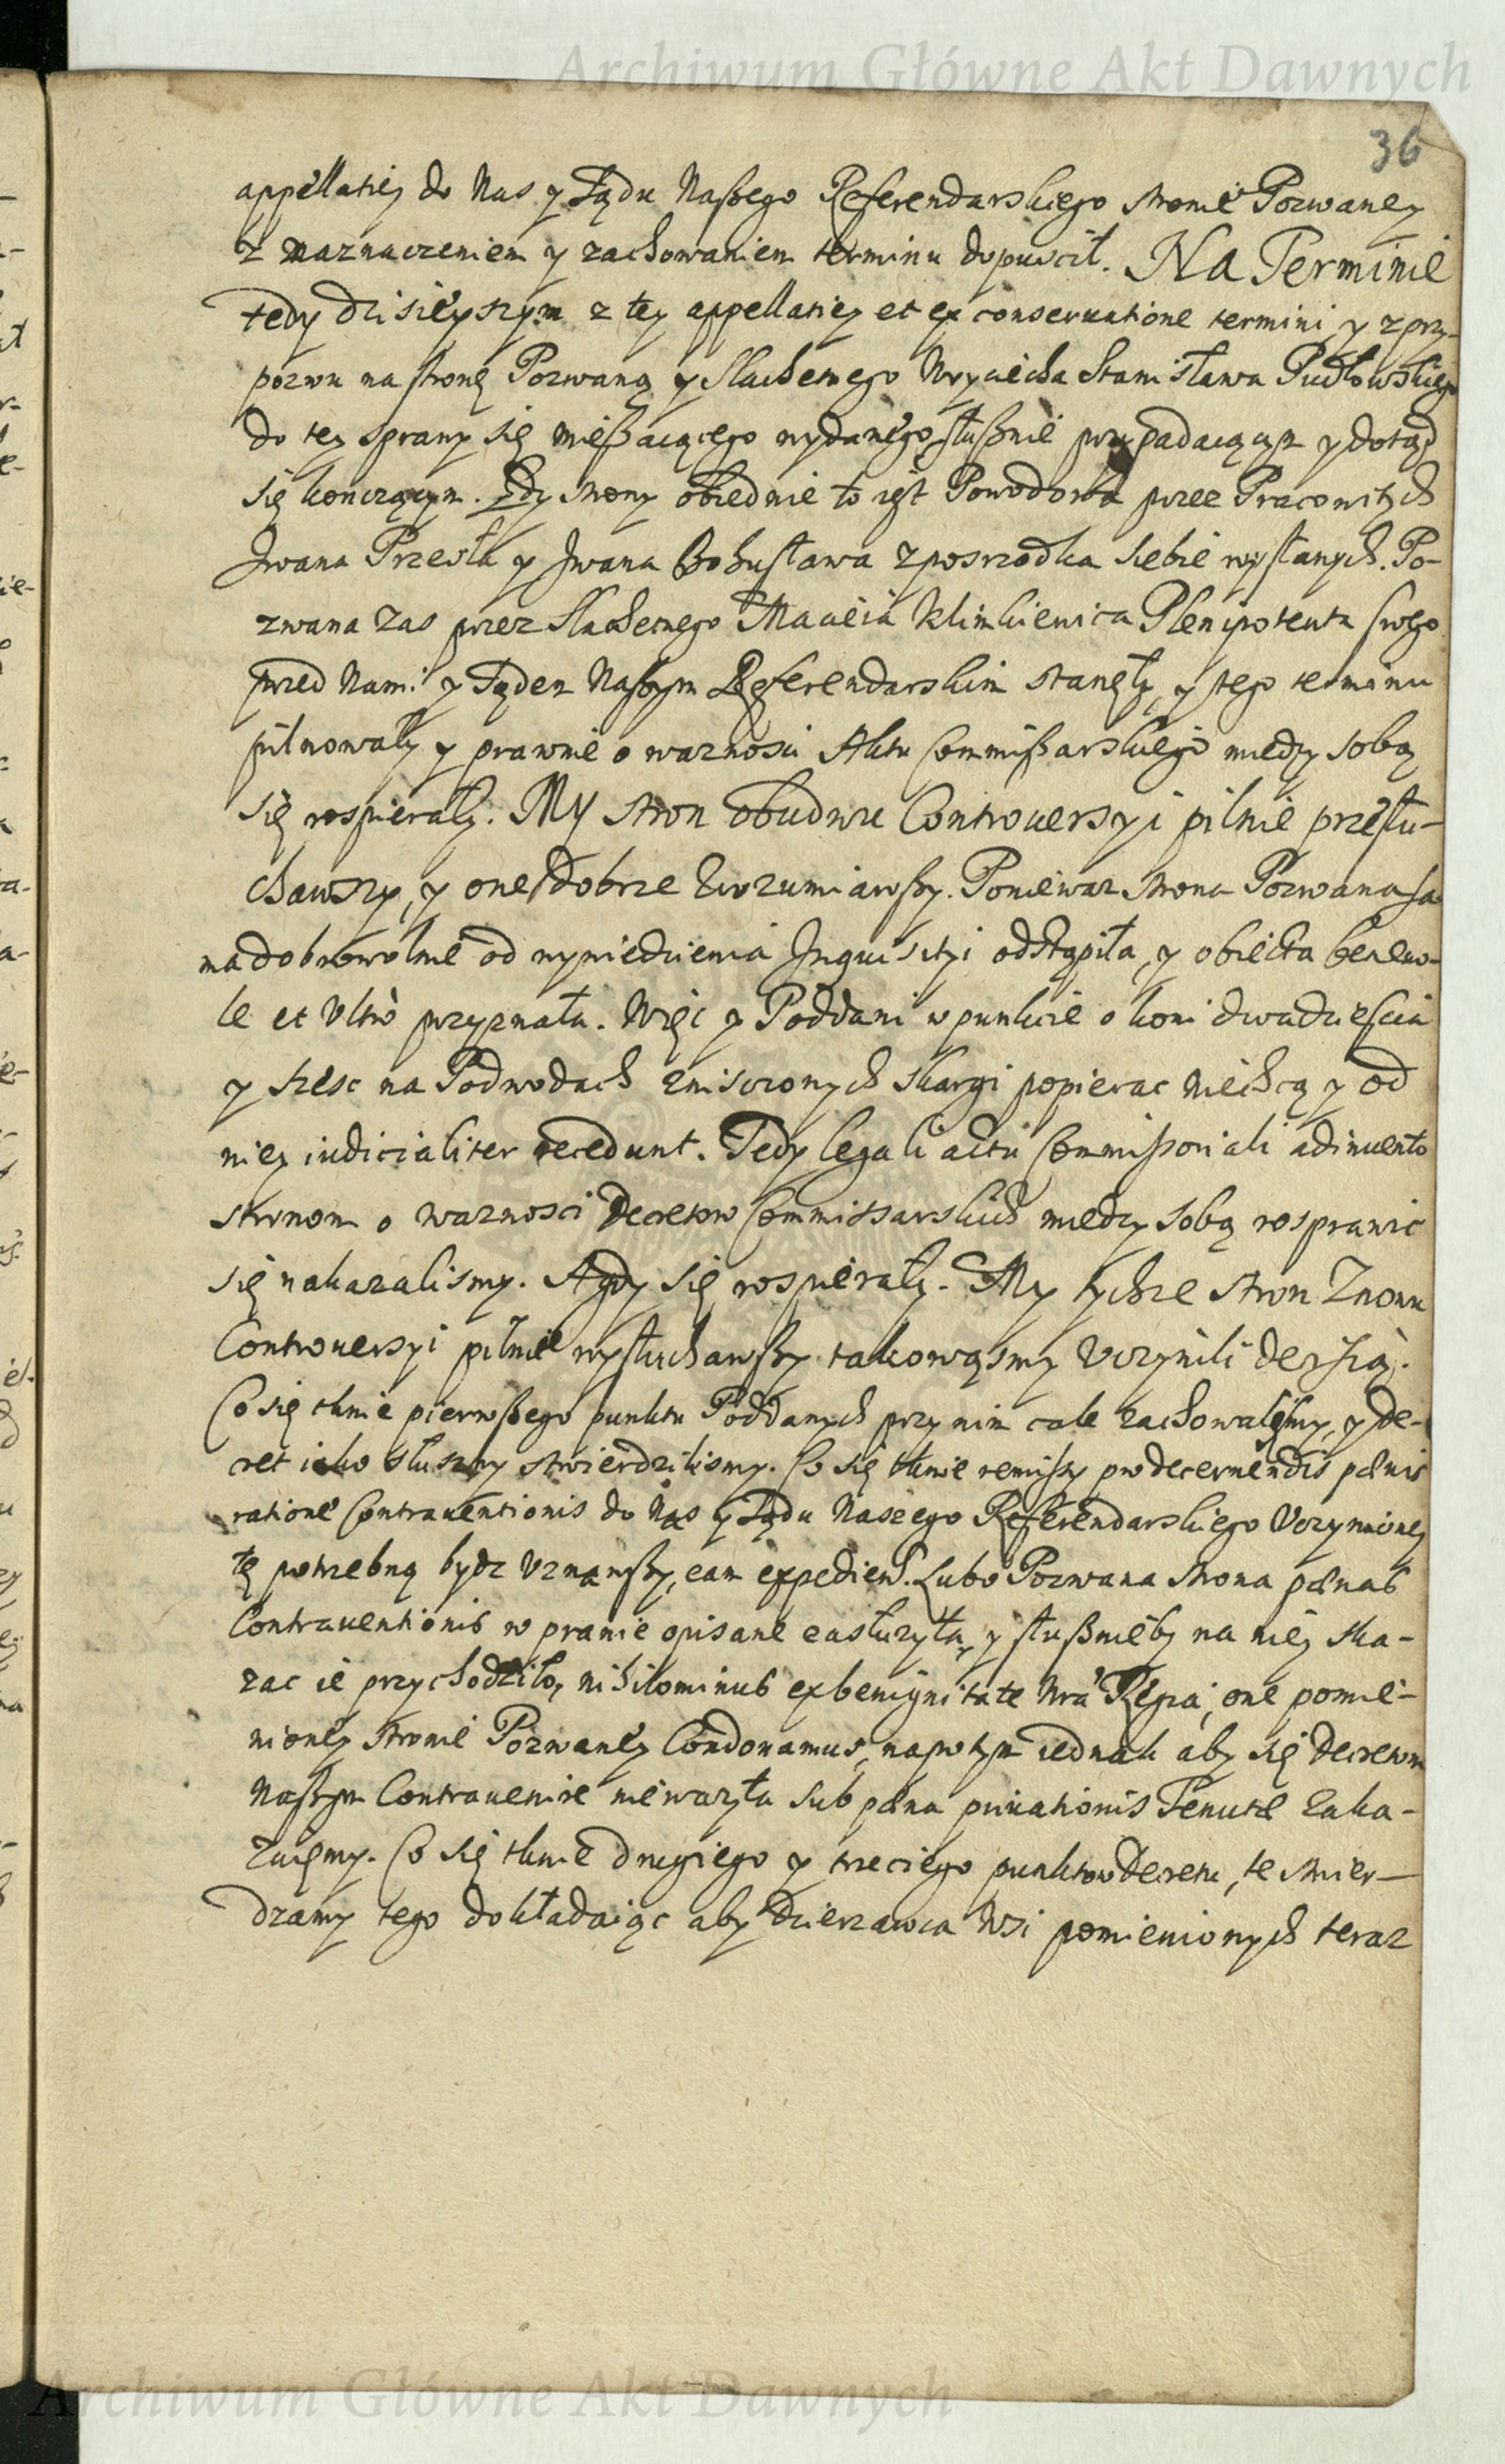 Archiwum Główne Akt Dawnych
36
appellatiey do Nas y Sądu Naßego Referendarskiego stronie Pozwaney
z naznaczeniem y zachowaniem terminu dopuscił. Na Terminie
tedy dzisieyszym z tey appellatiey et ex conseruatione termini y z przy-
pozwu na stronę Pozwaną y Slachetnego Woyciecha Stanisława Pudłowskiego
do tey sprawy się mießaiącego wydanego, słußnie przypadaiącym y dotąd
się konczącym. Gdy strony obiednie to iest Powodowa przez Pracowitych
Jwana Przewła y Jwana Bohusława z posrzodka siebie wysłanych. Po-
zwana zas przez Slachetnego Macieia Klimkiewica Plenipotenta swego
przed Nami y Sądem Naßym Referendarskim stanęły, y tego terminu
pilnowały y prawnie o waznosci Aktu Commißarskiego miedzy sobą
się rospierały. My stron obudwu Controuersyi pilnie przesłu-
chawszy, y one dobrze wyrozumiawßy. Poniewaz strona Pozwana sa-
ma dobrowolnie od wywiedzienia Jnquisityi odstąpiła, y obiecta beneuo-
le et Vltrò przyznała. Więc y Poddani w punkcie o koni dwadziescia
y szesc na Podwodach zniszczonych skargi popierac niechcą y od
niey iudicialiter recedunt. Tedy legali actu Commißoriali adinuento
stronom o waznosci Decretow Commissarskich miedzy sobą rosprawic
się nakazalismy. A gdy się rospierały. My tychze stron Znowu
Controuersyi pilnie wysłuchawßy takowąsmy Vczynili decisią.
Co się tknie pierwßego punktu Poddanych przy nim cale zachowalismy, y de-
cret iako słuszny stwierdzilismy. Co się tknie remißy pro decernendis pœnis
ratione Contrauentionis do Nas y Sądu Naszego Referendarskiego Vczynioney
tę potrzebną bydz Vznawßy, eam expediend. Lubo Pozwana strona pœnas
Contrauentionis w prawie opisane zasłuzyła, y słußnieby na niey ska-
zac ie przychodziło, nihilominus ex benignitate nra Regia, one pomie-
nioney stronie Pozwaney Condonamus, napotym iednak aby się decretom
Naßym Contrauenire niewazyła sub pœna priuationis Tenutæ zaka-
zuiemy. Co się tknie drugiego y trzeciego punktow Decretu, te stwier-
dzamy tego dokładaiąc aby Dzierzawca Wsi pomienionych teraz
Archiwum Główne Akt Dawnych